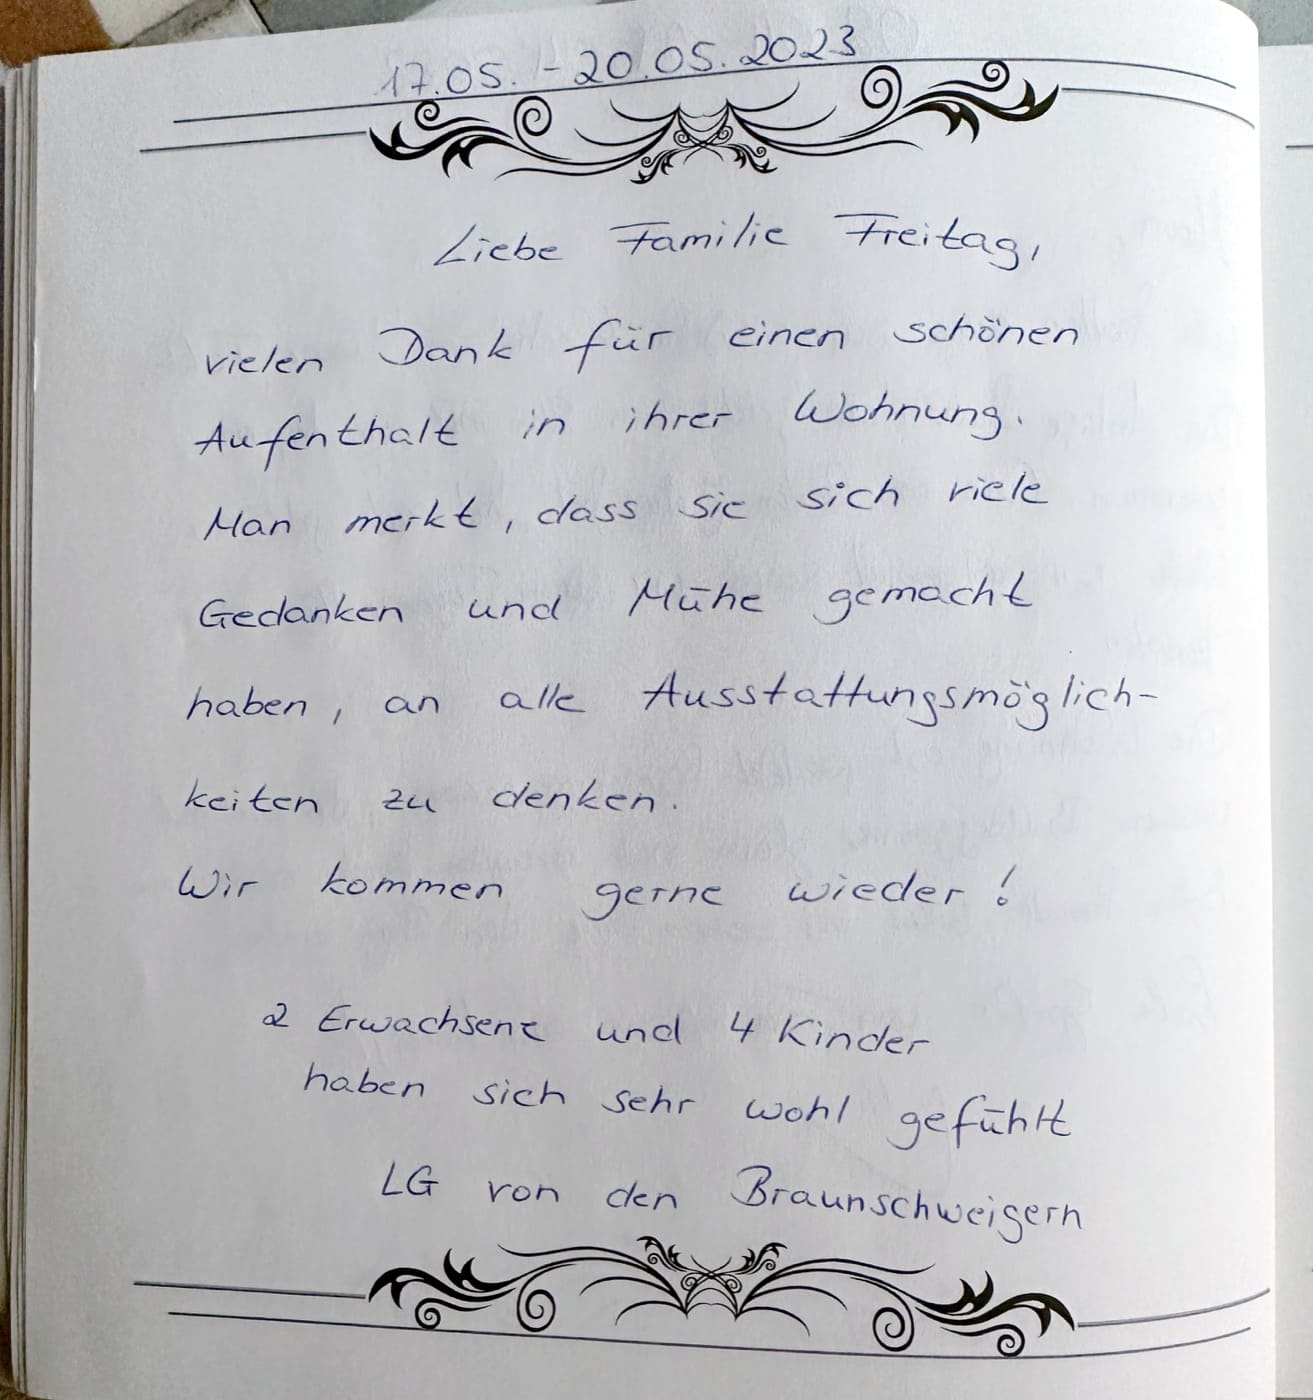 17.05. - 20.05.2023
Liebe Familie Freitag,
vielen Dank für einen schönen
Aufenthalt in ihrer Wohnung.
Man merkt, dass sie sich viele
Gedanken und Mühe gemacht
haben, an alle Ausstattungsmöglich-
keiten zu denken.
Wir kommen gerne wieder!
2 Erwachsene und 4 Kinder
haben sich sehr wohl gefühlt
LG von den Braunschweigern